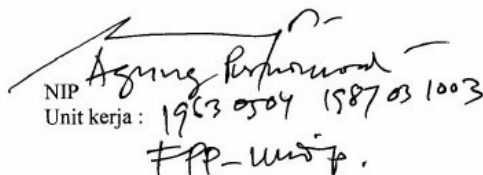 NIP Agung Purnomoadi
Unit kerja : 19630504 198703 1003
FPP-Undip.